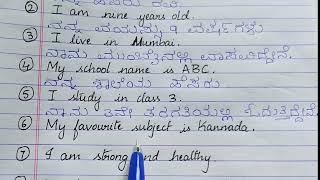 ② I am nine years old.
ನನ್ನ ವಯಸ್ಸು 9 ವರ್ಷಗಳು
③ I live in Mumbai.
ನಾನು ಮುಂಬೈನಲ್ಲಿ ವಾಸಿಸುತ್ತಿದ್ದೇನೆ.
④ My school name is ABC.
ನನ್ನ ಶಾಲೆಯ ಹೆಸರು
⑤ I study in class 3.
ನಾನು 3ನೇ ತರಗತಿಯಲ್ಲಿ ಓದುತ್ತಿದ್ದೇನೆ.
⑥ My favourite subject is Kannada.
⑦ I am strong and healthy.